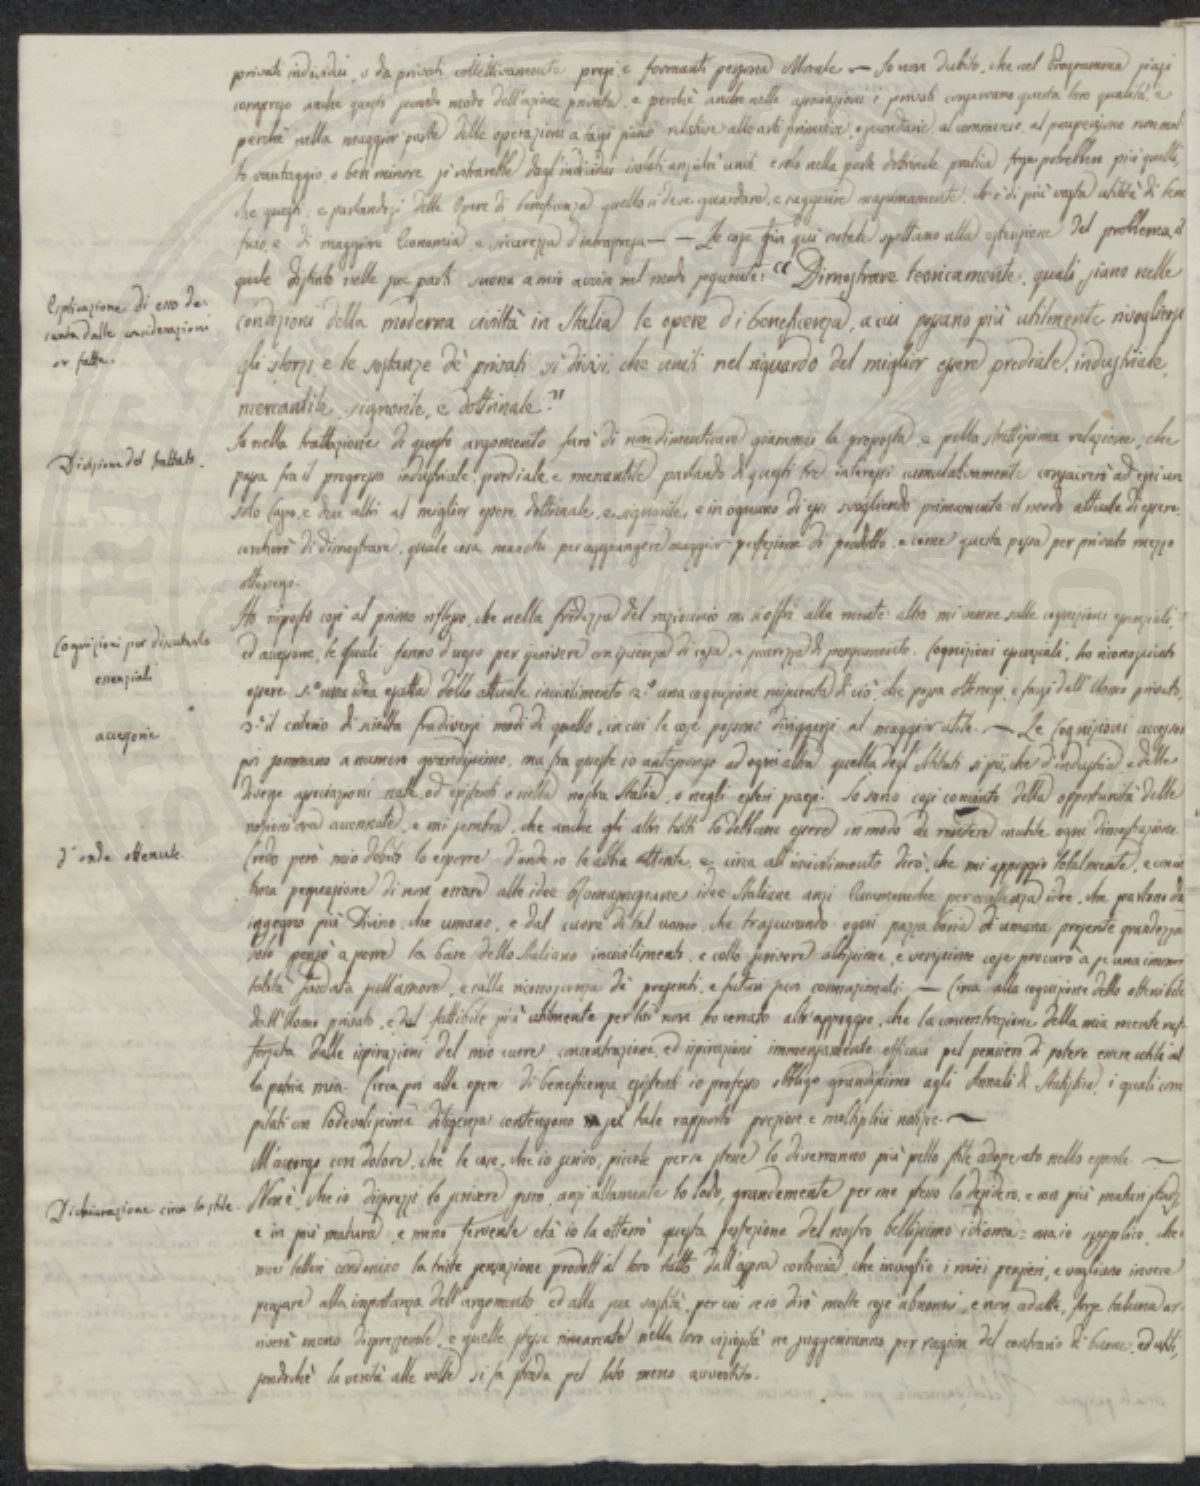 privati individui, o da privati collettivamente presi, e formanti persona Morale — Io non dubito, che nel Programma siasi
compreso anche questo secondo modo dell'azione privata, e perchè anche nelle associazioni i privati conservano questa loro qualità, e
perchè nella maggior parte delle operazioni a farsi siano relative alle arti primitive, e secondarie, al commercio, al pauperismo non mol-
to vantaggio, o ben minore si ritrarrebbe dagl'individui isolati anzichè uniti, e solo nella parte dottrinale pratica forse potrebbero più quelli,
che questi, e parlandosi delle Opere di beneficenza quello si deve guardare, e suggerire massimamente, ch'è di più vasta utilità, di bene
fisso, e di maggiore Economia, e sicurezza d'intrapresa — — Le cose fin qui notate spettano alla estensione del problema, il
quale distinto nelle sue parti suona a mio avviso nel modo seguente: "Dimostrare teoricamente, quali siano nelle
Esplicazione di esso de-
sunta dalle considerazioni
or fatte.
condizioni della moderna civiltà in Italia le opere di beneficenza, a cui possano più utilmente rivogliersi
gli sforzi e le sostanze de' privati sì divisi, che uniti nel riguardo del miglior essere prediale, industriale,
mercantile, signorile, e dottrinale."
Divisione del trattato.
Io nella trattazione di questo argomento farò di non dimenticare giammai la proposta, e la strettissima relazione, che
passa fra il progresso industriale, prediale, e mercantile parlando di questi tre interessi cumulativamente consacrerò ad essi un
solo Capo, e due altri al miglior essere dottrinale, e signorile, e in ognuno di essi svogliendo primamente il modo attuale di essere,
cercherò di dimostrare, quale cosa manchi per aggiungere maggior perfezione di prodotto, e come questa possa per privato mezzo
ottenersi.
Ho risposto così al primo riflesso, che nella freddezza del raziocinio mi si offrì alla mente: altro mi venne sulle cognizioni essenziali,
Cognizioni per discuterlo
essenziali
ed accessorie, le quali fanno d'uopo per scrivere con scienza di cosa, e sicurezza di pensamento. Cognizioni essenziali, ho riconosciuto
essere 1.° una idea esatta dello attuale incivilimento 2.° una cognizione di ciò, che possa ottenersi, e farsi dall'Uomo privato,
3.° il criterio di scelta fra diversi modi di quello, in cui le cose possono dirigersi al maggior utile. — Le Cognizioni accesso-
accessorie
rie sommano a numero grandissimo, ma fra queste io antepongo ad ogni altra quella degl'Istituti sì pii, che d'industria, e delle
diverse associazioni nate, od esistenti o nella nostra Italia, o negli esteri paesi. Io sono così convinto della opportunità delle
nozioni ora accennate, e mi sembra, che anche gli altri tutti lo debbano essere in modo da rendere inutile ogni dimostrazione.
d'onde ottenute.
Credo però mio debito lo esporre, d'onde io le abbia attinte, e, circa all'incivilimento dirò, che mi appoggio totalmente, e con in-
tima persuasione di non errare alle idee Romagnosiane, idee Italiane anzi Ecumeniche per eccellenza, idee, che partono da
ingegno più Divino, che umano, e dal cuore di tal uomo, che trascurando ogni pazza boria di umana presente grandezza
solo pensò a porre la base dello Italiano incivilimento, e collo scrivere altissime, e verissime cose procurò a se una immor-
talità fondata sull'amore, e sulla riconoscenza de' presenti, e futuri suoi connazionali — Circa alla cognizione dello ottenibile
dall'Uomo privato, e del fattibile più utilmente per lui non ho cercato altr'appoggio, che la concentrazione della mia mente raf-
forzata dalle ispirazioni del mio cuore, concentrazione, ed ispirazioni immensamente efficaci pel pensiero di potere essere utile al-
la patria mia. Circa poi alle opere di beneficenza esistenti io professo obbligo grandissimo agli Annali di Statistica, i quali com-
pilati con lodevolissima diligenza contengono sul tale rapporto preziose e moltiplici notizie. —
M'accorgo con dolore, che le cose, che io scrivo, piccole per se stesse lo diverranno più pello stile adoperato nello esporle. —
Dichiarazione circa lo stile.
Non è, che io disprezzi lo scrivere puro, anzi altamente lo lodo, grandemente per me stesso lo desidero, e con più maturi studj,
e in più matura, e meno fervente età io la otterrò questa perfezione del nostro bellissimo idioma: ma io supplico, che i
miei lettori condonino la triste sensazione prodotta al loro tatto dall'aspra corteccia, che involge i miei pensieri, e vogliano invece
pensare alla importanza dell'argomento, ed alla sua vastità, per cui se io dirò molte cose abnormi, e non adatte, forse taluna ar-
riverà meno disprezzevole, e quelle stesse rimarcate nella loro viziosità ne suggeriranno per ragion del contrario di buone, ed utili,
sendochè la verità alle volte si fa strada pel lato meno avvertito.